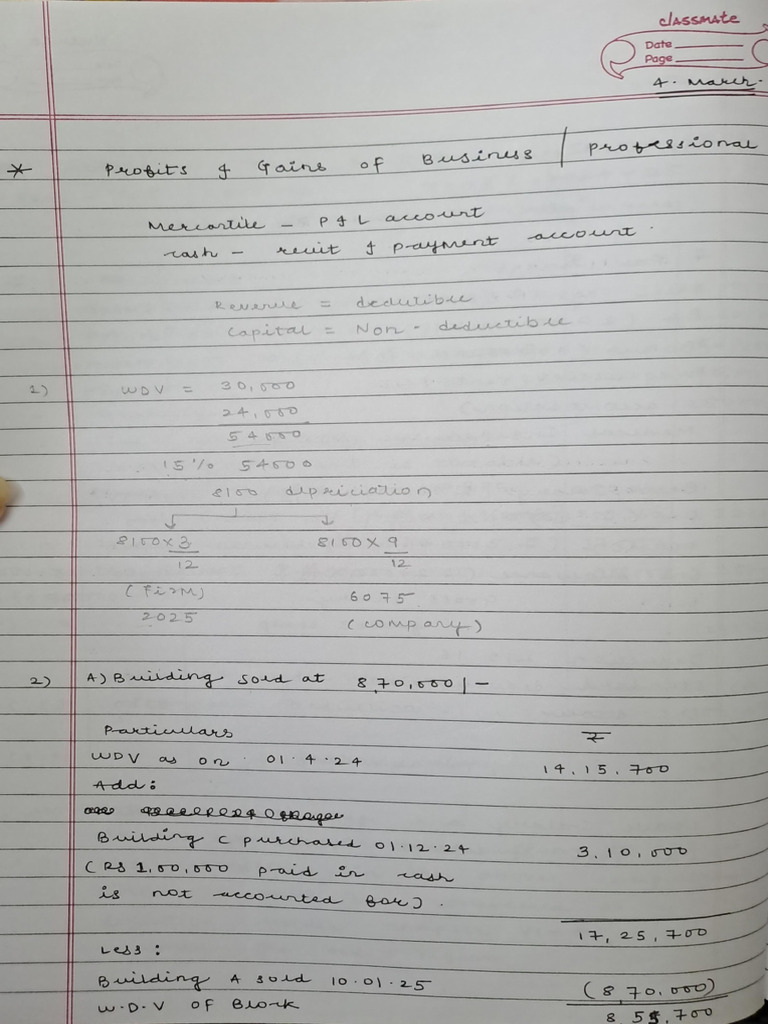 classmate
Date
Page
4. March.
* Profits & Gains of Business / Professional
Mercantile - P & L account
cash - recuit & payment account.
Revenue = dedutible
Capital = Non - deductible
1) WDV = 30,000
24,000
54000
15% 54000
8100 depriciation
8100 x 3/12 8100 x 9/12
(Firm) 6075
2025 (company)
2) A) Building sold at 8,70,000/-
Particullars ₹
WDV as on 01.4.24 14,15,700
Add:
Building C purchased 01.12.24 3,10,000
(RS 1,00,000 paid in cash
is not accounted for).
17,25,700
Less:
Building A sold 10.01.25 (8,70,000)
W.D.V of Block 8,55,700